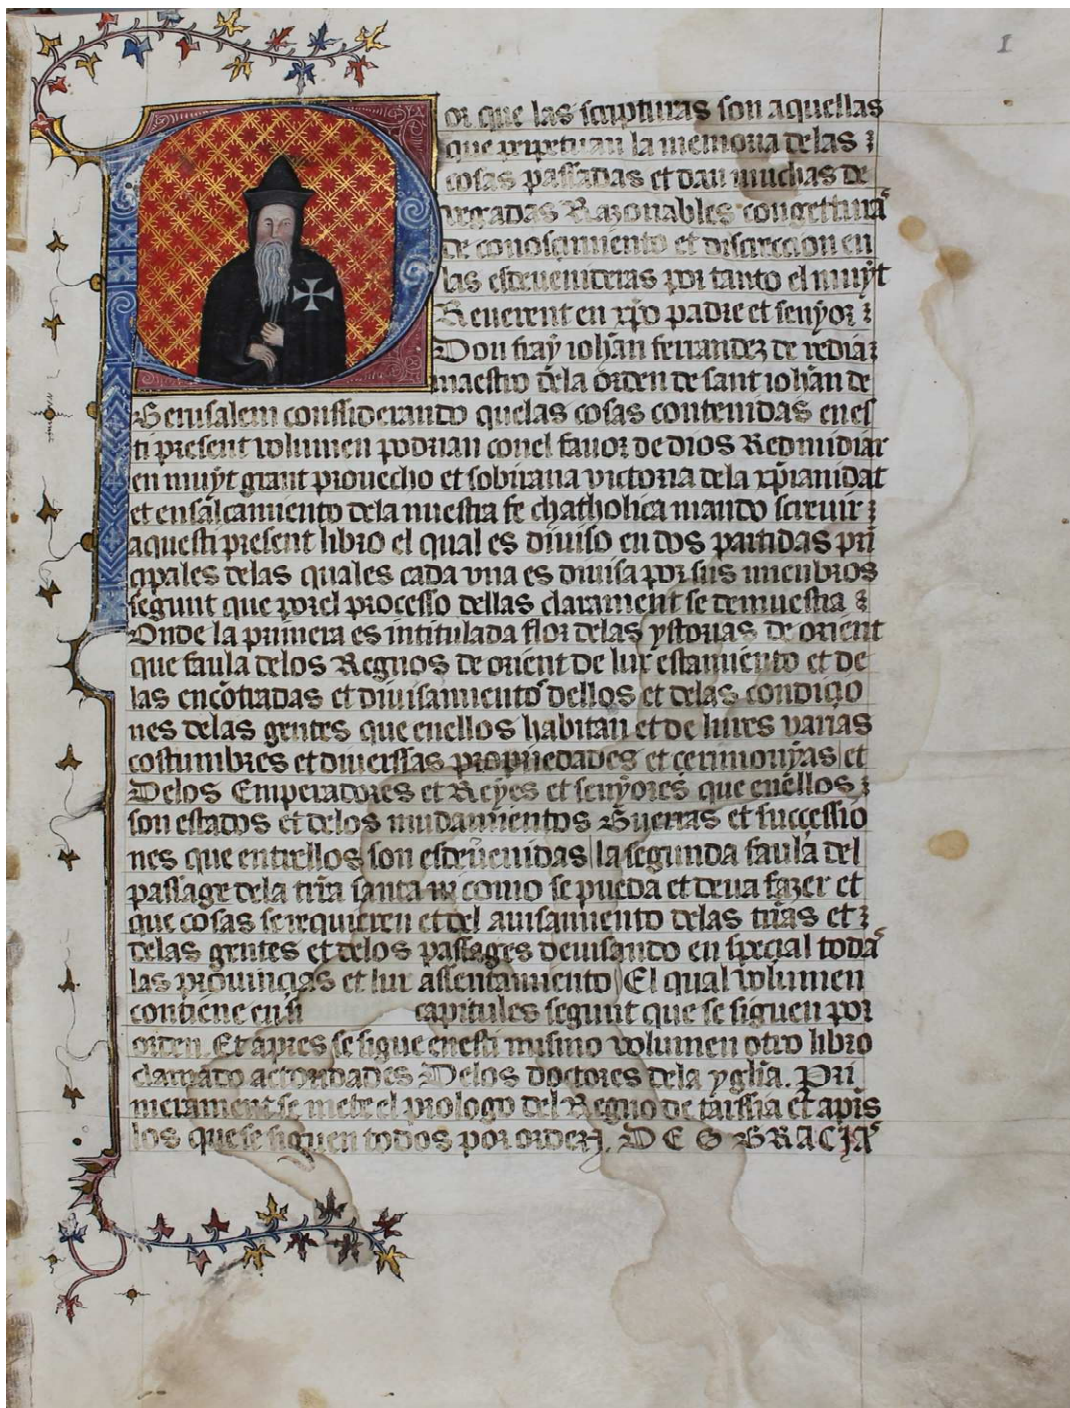 1
Por que las scripturas son aquellas
que perpetuan la memoria delas ꝛ
cosas passadas et dan muchas de
vegadas Razonables congecturas
de conoscimiento et discrecion en
las esdeuenideras por tanto el muyt
Reuerent en xp̃o padre et senyor ꝛ
Don fray ioh̃an ferrandez de redia ꝛ
maestro dela orden de sant ioh̃an de
Gerusalem conssiderando quelas cosas contenidas enes
ti present volumen podrian conel fauor de dios Redundar
en muyt grant prouecho et sobirana victoria dela xp̃ianidat
et ensalçamiento dela nuestra fe chatholica mando screuir ꝛ
aquesti present libro el qual es diuiso en dos partidas prin
cipales delas quales cada vna es diuisa por sus mienbros
segunt que porel processo dellas clarament se demuestra ꝛ
Onde la primera es intitulada flor delas ystorias de orient
que faula delos Regnos de orient de lur estamiento et de
las encõtradas et diuisamientos dellos et delas condicio
nes delas gentes que enellos habitan et de lures varias
costumbres et diuerssas propriedades et cerimonyas et
Delos Emperadores et Reyes et senyores que enellos ꝛ
son estados et delos mudamientos Guerras et successio
nes que entrellos son esdeuenidas la segunda faula del
passage dela tr̃ra santa como se pueda et deua fazer et
que cosas se requieren et del auisamiento delas tr̃as et ꝛ
delas gentes et delos passages deuisando en special todas
las prouincias et lur assentamiento El qual volumen
contiene en si capitules segunt que se siguen por
orden. Et apres se sigue enesti mismo volumen otro libro
clamado actoridades Delos doctores dela yglia. Pri
merament se mete el prologo del Regno de tarssia et apres
los que se siguen todos por orden. DEO GRACIAS